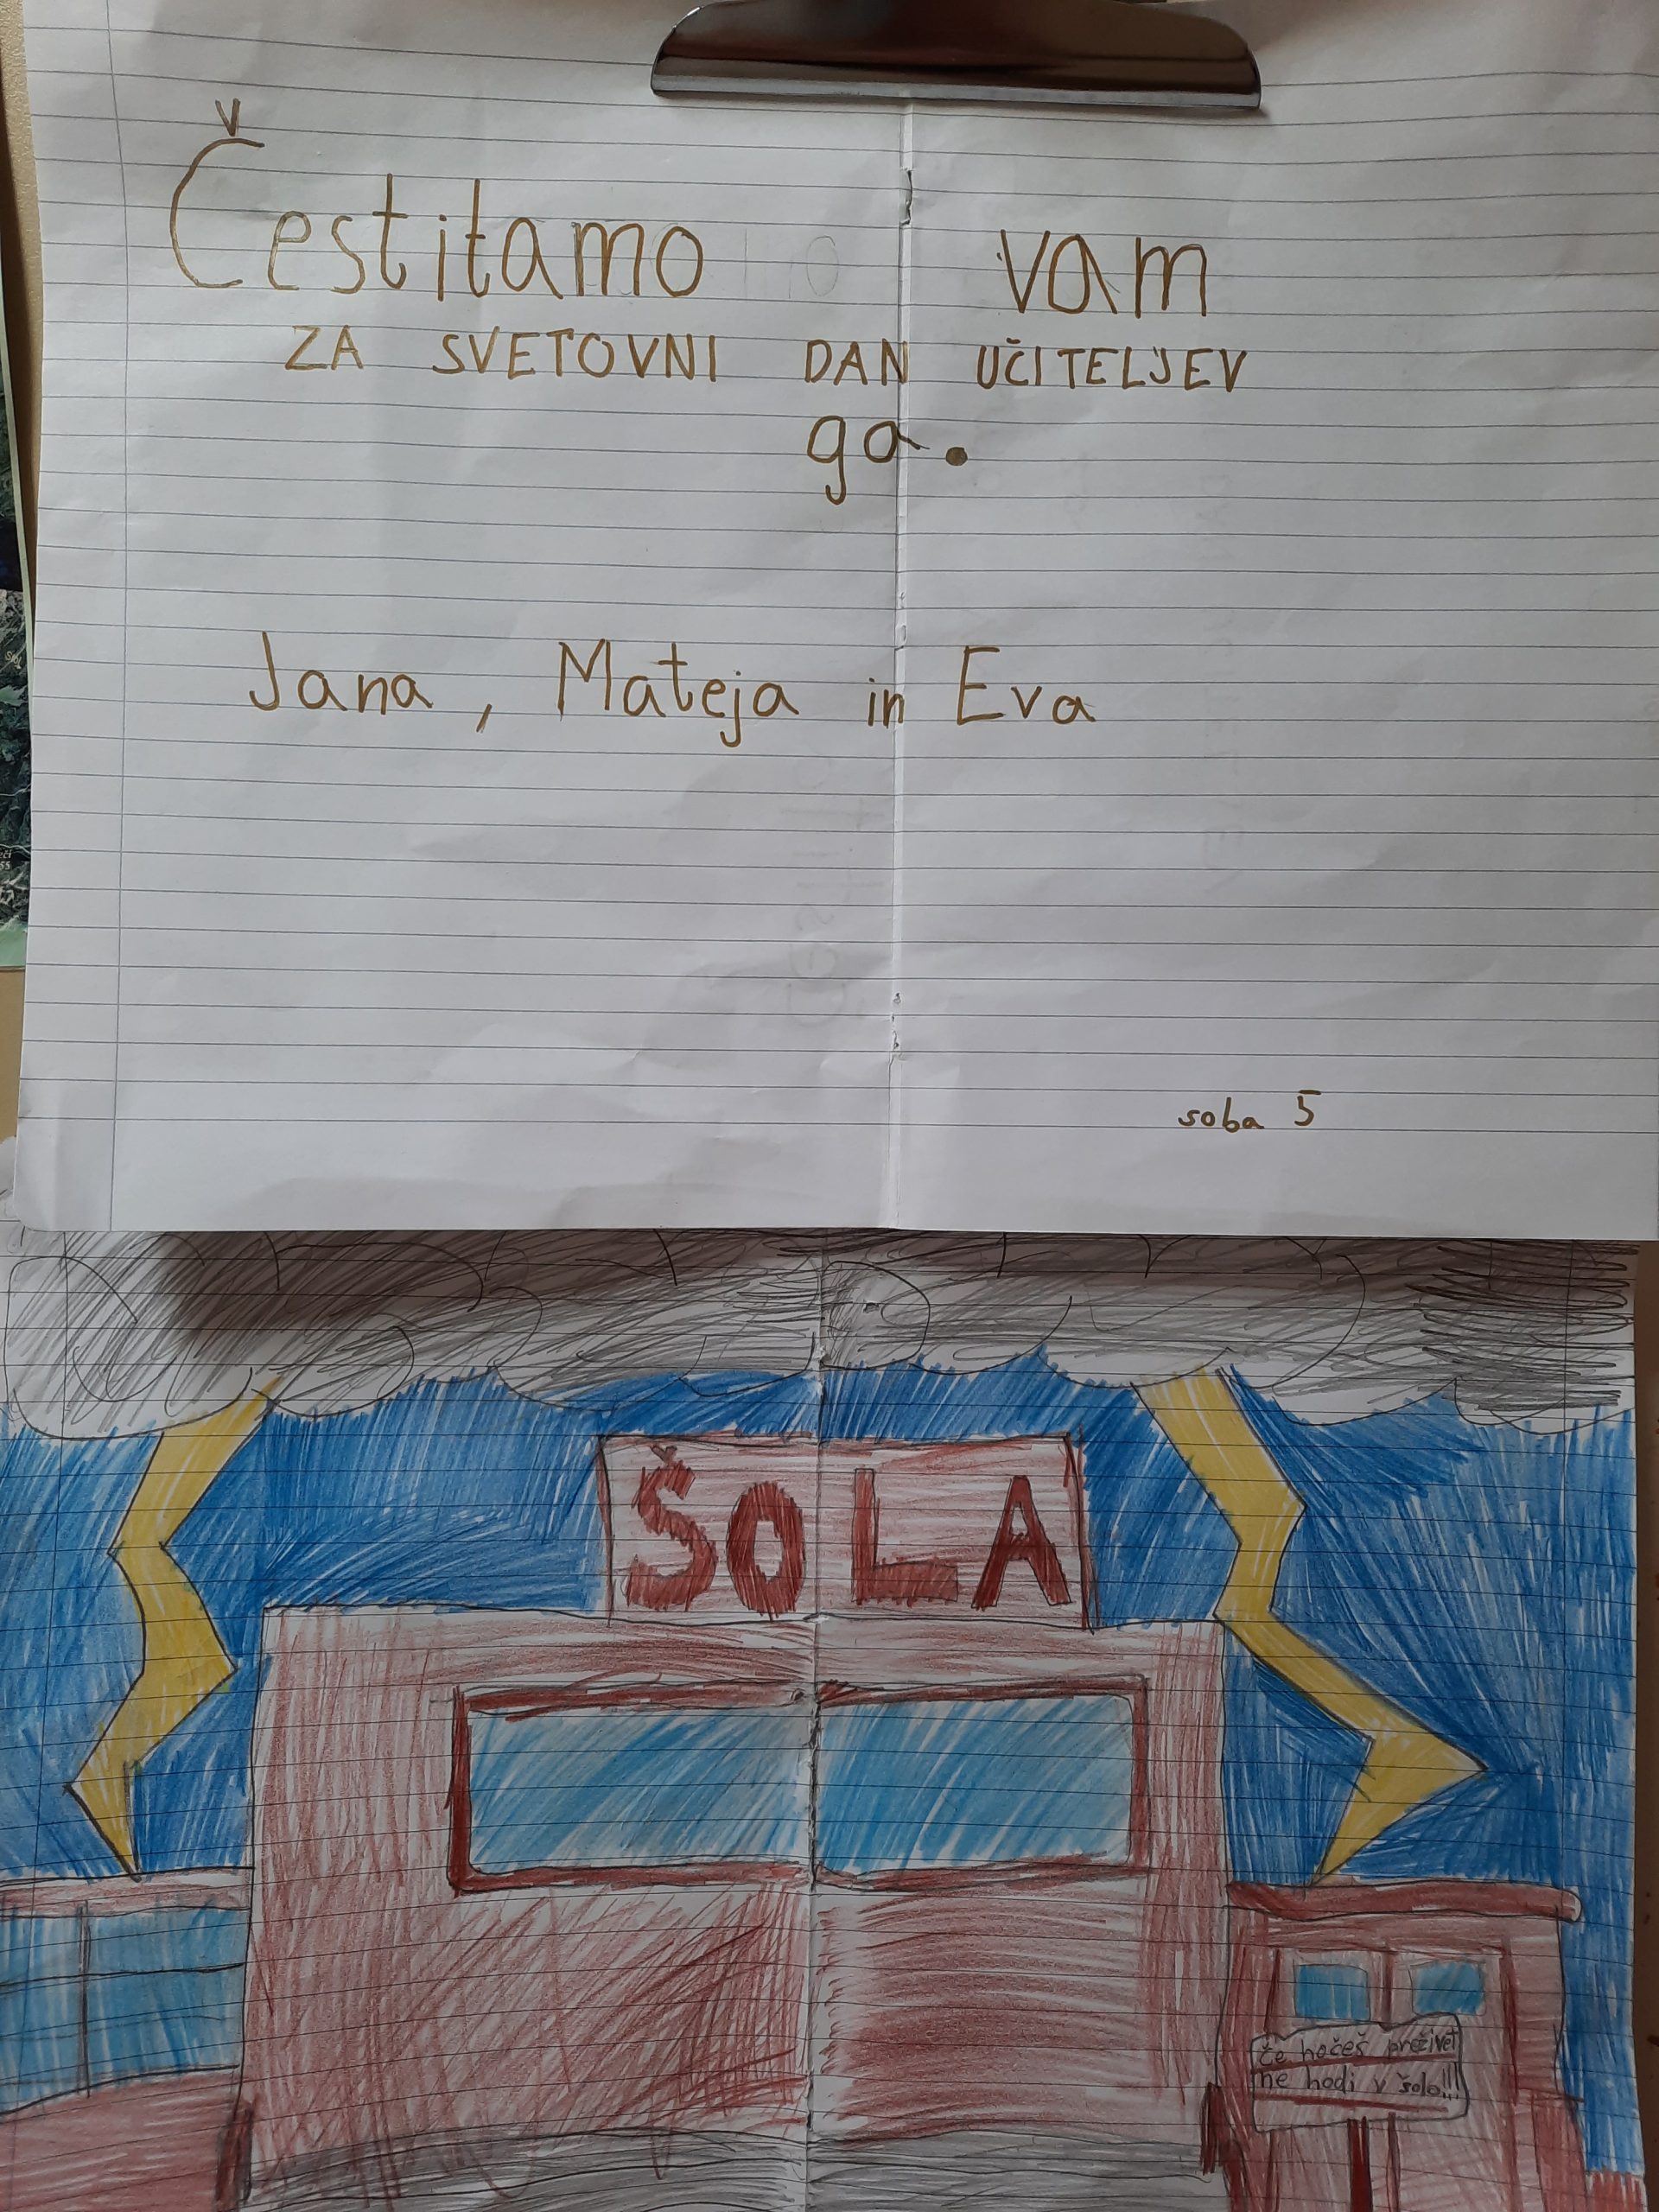 Čestitamo vam
ZA SVETOVNI DAN UČITELJEV
ga.
Jana, Mateja in Eva
soba 5
ŠOLA
Če hočeš preživet
ne hodi v šolo!!!